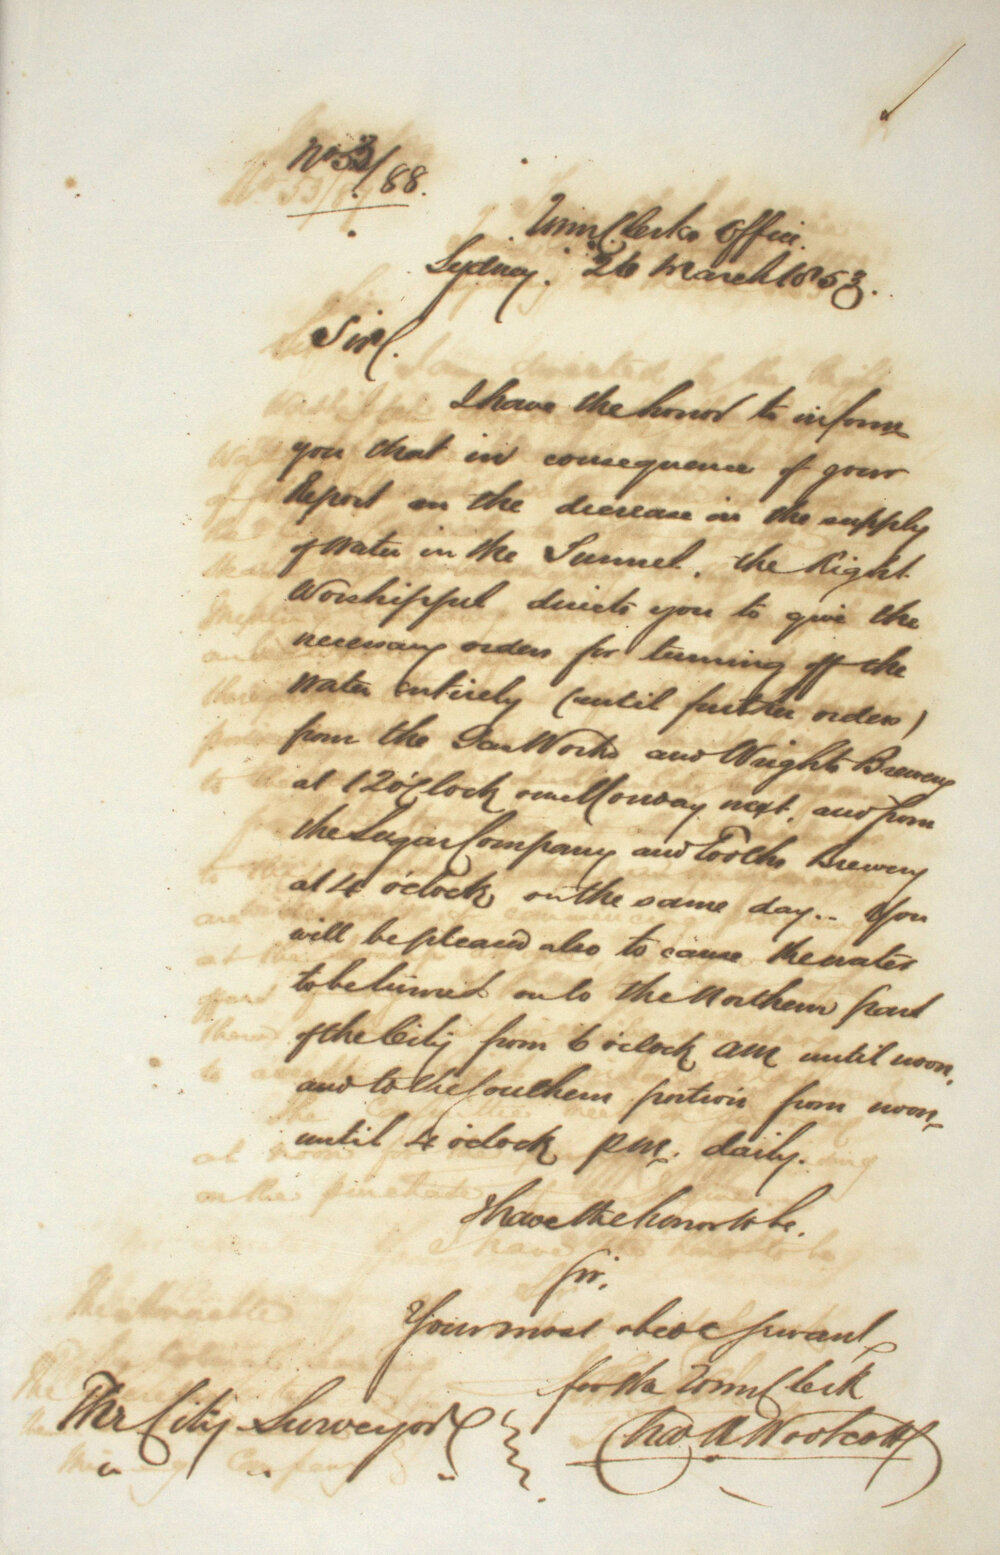 No 53/88.
Town Clerks Office.
Sydney. 26 March 1853.
Sir,
I have the honor to inform
you that in consequence of your
Report on the decrease in the supply
of Water in the Tunnel, the Right
Worshipful directs you to give the
necessary orders for turning off the
Water entirely (until further orders)
from the Gas Works and Wrights Brewery
at 12 o'Clock on Monday next, and from
the Sugar Company and Tooths Brewery
at 4 o'clock on the same day.. You
will be pleased also to cause the water
to be turned on to the Northern part
of the City from 6 o'clock am until noon,
and to the Southern portion from noon
until 4 o'clock pm. daily.
I have the honor to be.
Sir.
Your most obedt Servant
for the Town Clerk
Chas H Woolcott
The City Surveyor